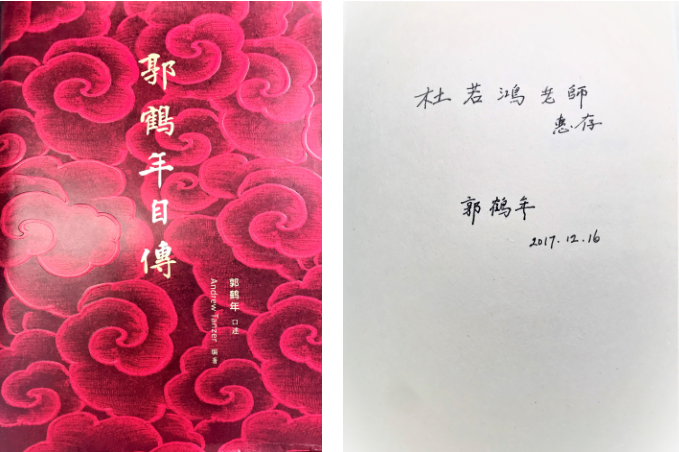 郭鶴年自傳
郭鶴年 口述
Andrew Tanzer 編著
杜若鴻老師
惠存
郭鶴年
2017.12.16